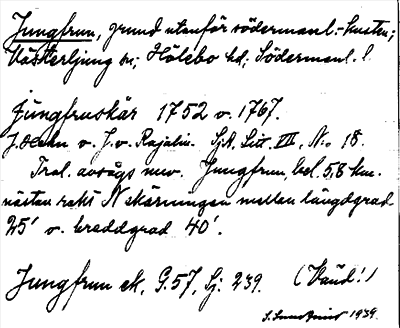 Jungfrun, grund utanför södermanl.-kusten;
Västerljung sn; Hölebo hd; Södermanl. l.
Jungfruskär 1752 o. 1767.
J. v. J. v. Rajalin. SjA, Litt. VII, No 18.
Trol. avsågs nuv. Jungfrun, bel. 5,8 km.
nästan rakt N skärningen mellan längdgrad
25' o. breddgrad 40'.
Jungfrun ek, G.57, Sj: 239. (Vaud!)
1939.